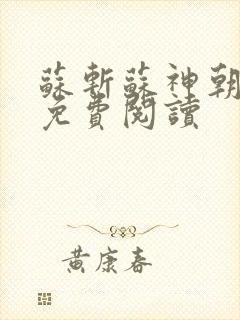 蘇斬蘇神朝
免費閱讀
黃康春